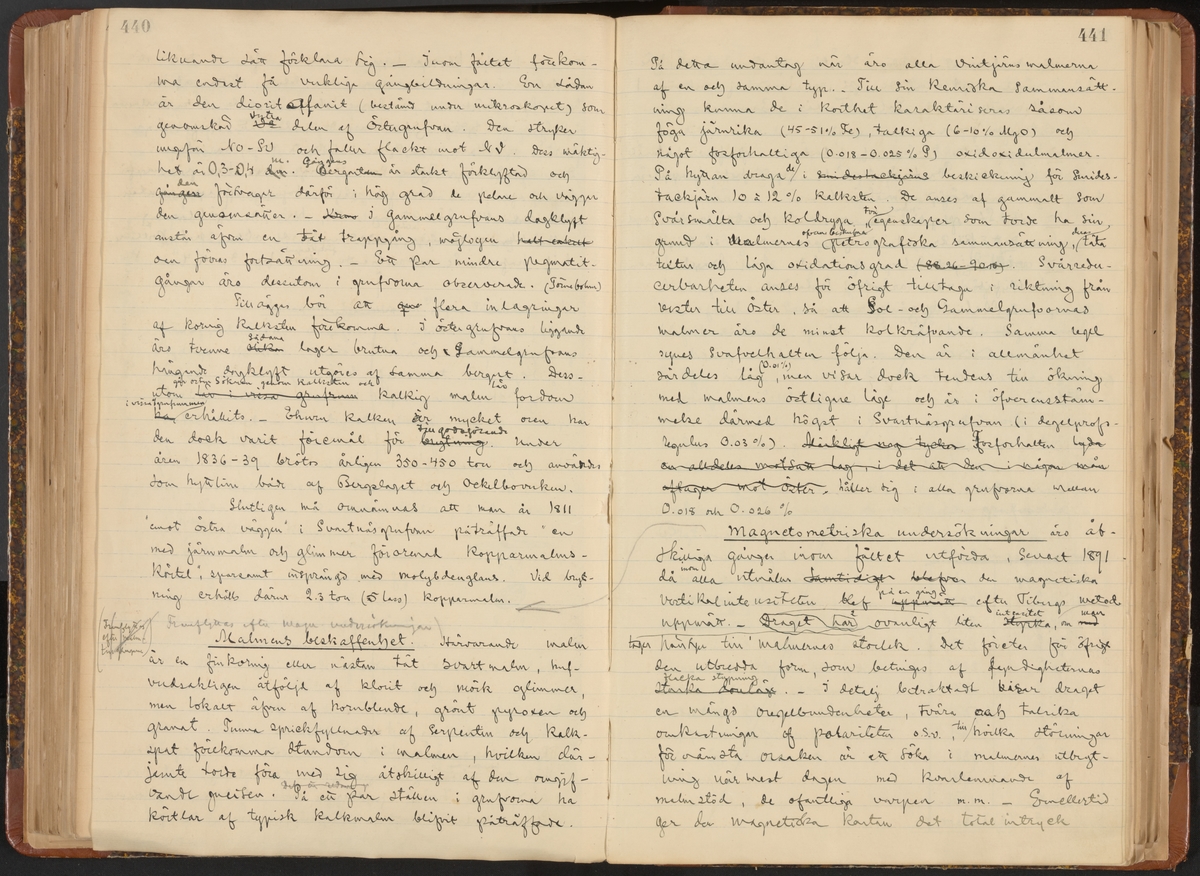 440
liknande sätt förklara sig. – Inom fältet förekom-
ma endast få verkliga gångbildningar. En sådan
är den dioritaffanit (bestämd under mikroskopet) som
genomskär västra delen af Östergrufvan. Den stryker
ungefär NO-SV och faller flackt mot NV. Dess mäktig-
het är 0,3-0,4 m. Gångens Bergarten är starkt förklyftad och
gången den försvagar därför i hög grad de pelare och väggar
den genomsätter. – I Gammelgrufvans dagklyft
anstår äfven en tät trappgång, möjligen
en förras fortsättning. – Ett par mindre pegmatit-
gångar äro dessutom i grufvorna observerade. (Törnebohm)
Tilläggas bör att flera inlagringar
af kornig kalksten förekomma. I Östergrufvans liggande
äro tvenne sådana lager brutna och Gammelgrufvans
hängande dagklyft utgöres af samma bergart. Dess-
utom går ort N. Sökan genom kalksten och
i vissa grufrummen kalkig malm lär fordom
ha erhållits. – Ehuru kalken är mycket oren har
den dock varit föremål för tillgodogörande brytning. Under
åren 1836-39 bröts årligen 350-450 ton och användes
som hyttlim både af Bergslaget och Ockelbovreken.
Slutligen må omnämnas att man år 1811
"emot östra väggen" i Svartnäsgrufvan påträffade "en
med järnmalm och glimmer förorenad kopparmalms-
körtel", sparsamt insprängd med molybdenglans. Vid bryt-
ning erhölls därur 2.3 ton (5 lass) kopparmalm.
(Framflyttas efter magn. undersökningar)
Malmens beskaffenhet. Härvarande malm
är en finkornig eller nästan tät svartmalm, huf-
vudsakligen åtföljd af klorit och mörk glimmer,
men lokalt äfven af hornblende, grönt pyroxen och
granat. Tunna sprickfyllnader af serpentin och kalk-
spat förekomma stundom i malmen, hvilken där-
jemte torde föra med sig åtskilligt af den omgif-
vande gneisen. På ett par ställen i grufvorna ha
körtlar af typisk kalkmalm blifvit påträffade.
441
På detta undantag när äro alla Vintjärnsmalmerna
af en och samma typ. – Till sin kemiska sammansätt-
ning kunna de i korthet karaktäriseras såsom
föga järnrika (45-51% Fe), talkiga (6-10% MgO) och
något fosforhaltiga (0.018-0.025% P) oxidoxidulmalmer.
På hyttan draga de i smidestackjärns beskickning för smides-
tackjärn 10 à 12% kalksten. De anses af gammalt som
svårsmälta och koldryga, egenskaper som torde ha sin
grund i malmernes ofvan beskrifna petrografiska sammansättning, deras täta
textur och låga oxidationsgrad (88.26-90.0). Svårredu-
cerbarheten anses för öfrigt tilltaga i riktning från
vester till öster, så att Sol- och Gammelgrufvornas
malmer äro de minst kolkräfvande. Samma regel
synes svafvelhalten följa. Den är i allmänhet
särdeles låg (0.01%), men visar dock tendens till ökning
med malmens östligare läge och är i öfverensstäm-
melse därmed högst i Svartnäsgrufvan (i degelprofs-
regulus 0.03%). Märkligt nog tyckes fosforhalten lyda
en alldeles motsatt lag, i det att den i någon mån
aftager mot öster, håller sig i alla grufvorna mellan
0.018 och 0.026%
Magnetometriska undersökningar äro åt-
skilliga gånger inom fältet utförda, senast 1891
då inom alla utmålen samtidigt den magnetiska
vertikalintensiteten blef på en gång uppmätt efter Tibergs metod
uppmätt. – Draget har ovanligt liten intensitet styrka, om man
tager hänsyn till malmernes storlek. Det företer för öfrigt
den utbredda form, som betingas af fyndigheternas
flacka stupning. – I detalj betraktadt visar draget
en mängd oregelbundenheter, tvära och talrika
omkastningar af polariteten o.s.v. till hvilka störningar
förnämsta orsaken är att söka i malmernes utbryt-
ning närmest dagen med kvarlemnande af
malmstöd, de ofantliga varpen m.m. – Emellertid
ger den magnetiska kartan det totalintryck